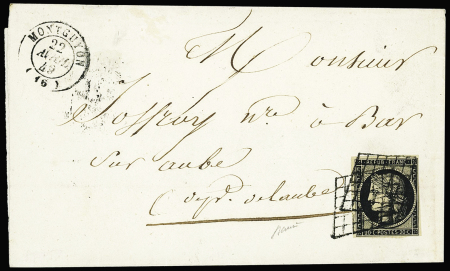 MONTGUYON
22
AVRIL
49
(16)
Monsieur
Joffroy nre à Bar
sur aube
dept. de laube
REPUB. FRANC.
20 c POSTES 20 c